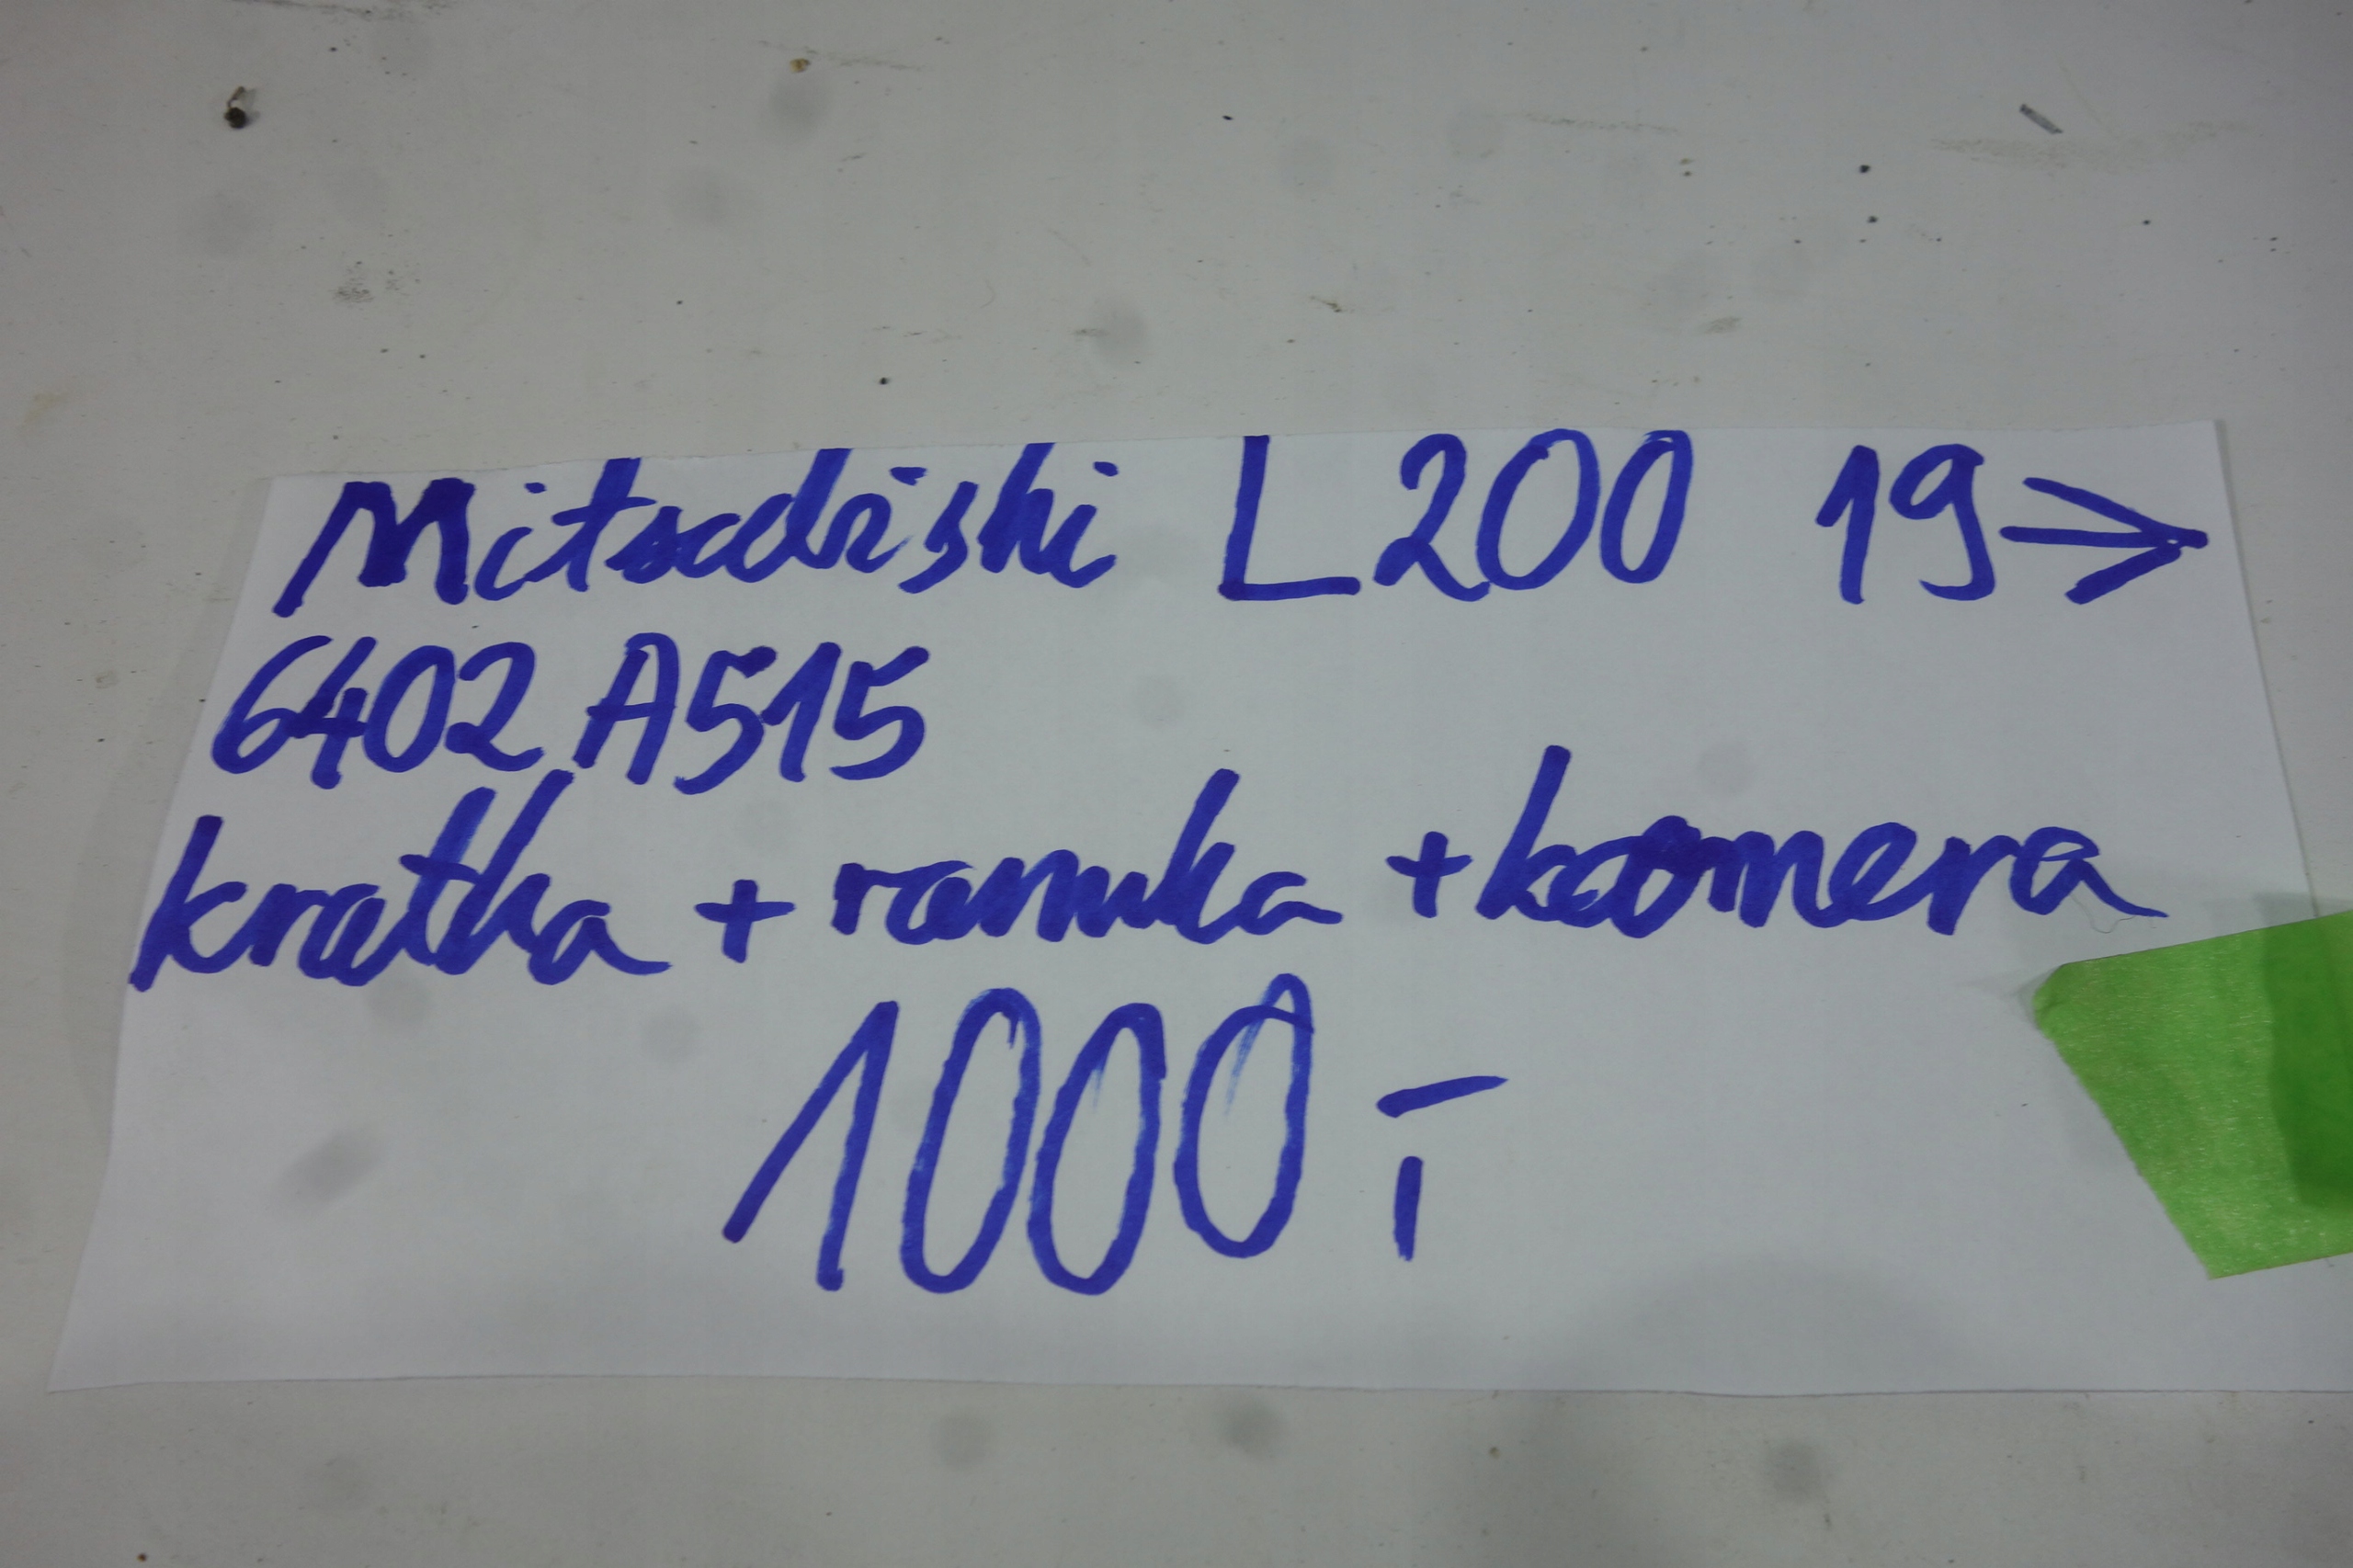 Mitsubishi L200 19→
6402A515
kratka + ramka + kamera
1000,-